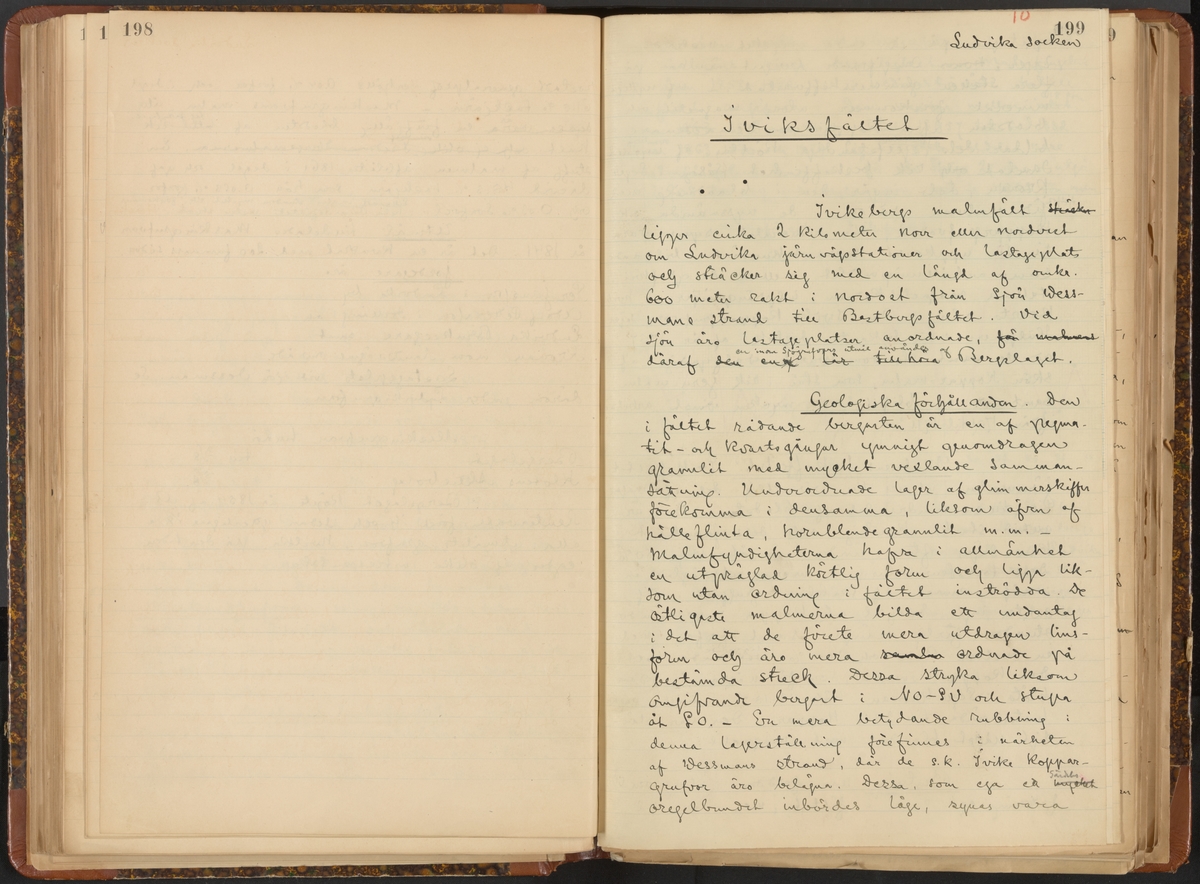 198
10
199
Ludvika socken
Iviksfältet
Ivikebergs malmfält sträcker
ligger cirka 2 kilometer norr eller nordvest
om Ludvika järnvägsstationer och lastageplats
och sträcker sig med en längd af omkr.
600 meter rakt i nordost från sjön Wess-
mans strand till Bastbergsfältet. Vid
sjön äro lastageplatser anordnade, för malmens
däraf den en är tillhöra Bergslaget.
Geologiska förhållanden. Den
i fältet rådande bergarten är en af pegma-
tit- och kvartsgångar ymnigt genomdragen
granulit med mycket vexlande samman-
sätning. Underordnade lager af glimmerskiffer
förekomma i densamma, liksom äfven af
hälleflinta, hornblendegranulit m.m. -
Malmfyndigheterna hafva i allmänhet
en utpräglad körtlig form och ligga lik-
som utan ordning i fältet inströdda. De
östligaste malmerna bilda ett undantag
i det att de förete mera utdragen lins-
form och äro mera samla ordnade på
bestämda streck. Dessa stryka liksom
omgifvande bergart i NO-SV och stupa
åt SO. - En mera betydande rubbning i
denna lagerställning förefinnes i närheten
af Wessmans strand, där de s.k. Ivike Koppar-
grufvor äro belägna. Dessa, som ega ett särdeles mycket
oregelbundet inbördes läge, synas vara